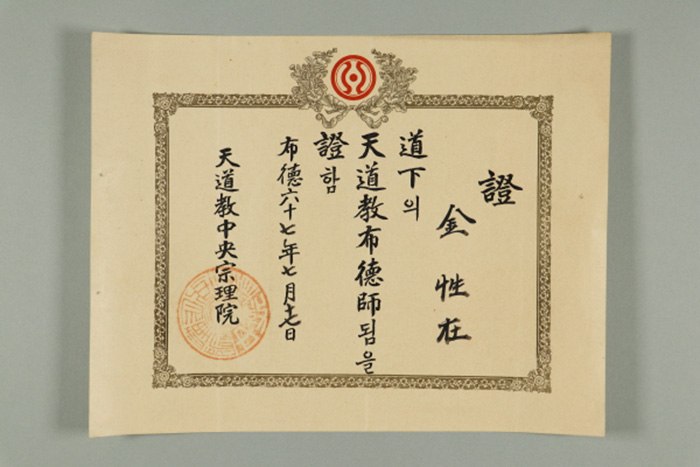 證
金性在
道下의
天道教布德師됨을
證함
布德六十七年七月十七日
天道教中央宗理院